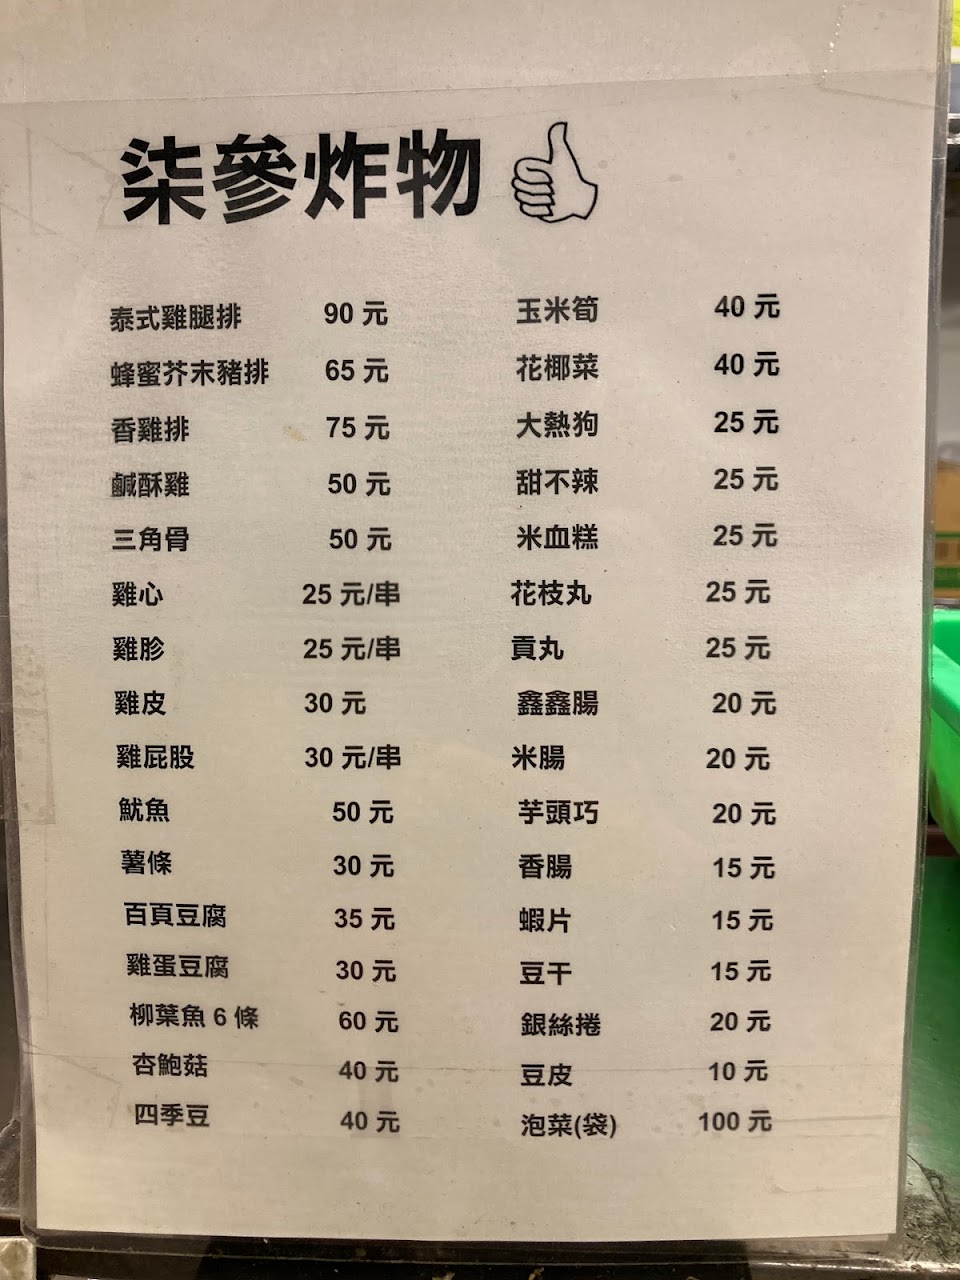 柒參炸物
泰式雞腿排 90 元
蜂蜜芥末豬排 65 元
香雞排 75 元
鹹酥雞 50 元
三角骨 50 元
雞心 25 元/串
雞胗 25 元/串
雞皮 30 元
雞屁股 30 元/串
魷魚 50 元
薯條 30 元
百頁豆腐 35 元
雞蛋豆腐 30 元
柳葉魚 6 條 60 元
杏鮑菇 40 元
四季豆 40 元
玉米筍 40 元
花椰菜 40 元
大熱狗 25 元
甜不辣 25 元
米血糕 25 元
花枝丸 25 元
貢丸 25 元
鑫鑫腸 20 元
米腸 20 元
芋頭巧 20 元
香腸 15 元
蝦片 15 元
豆干 15 元
銀絲捲 20 元
豆皮 10 元
泡菜(袋) 100 元